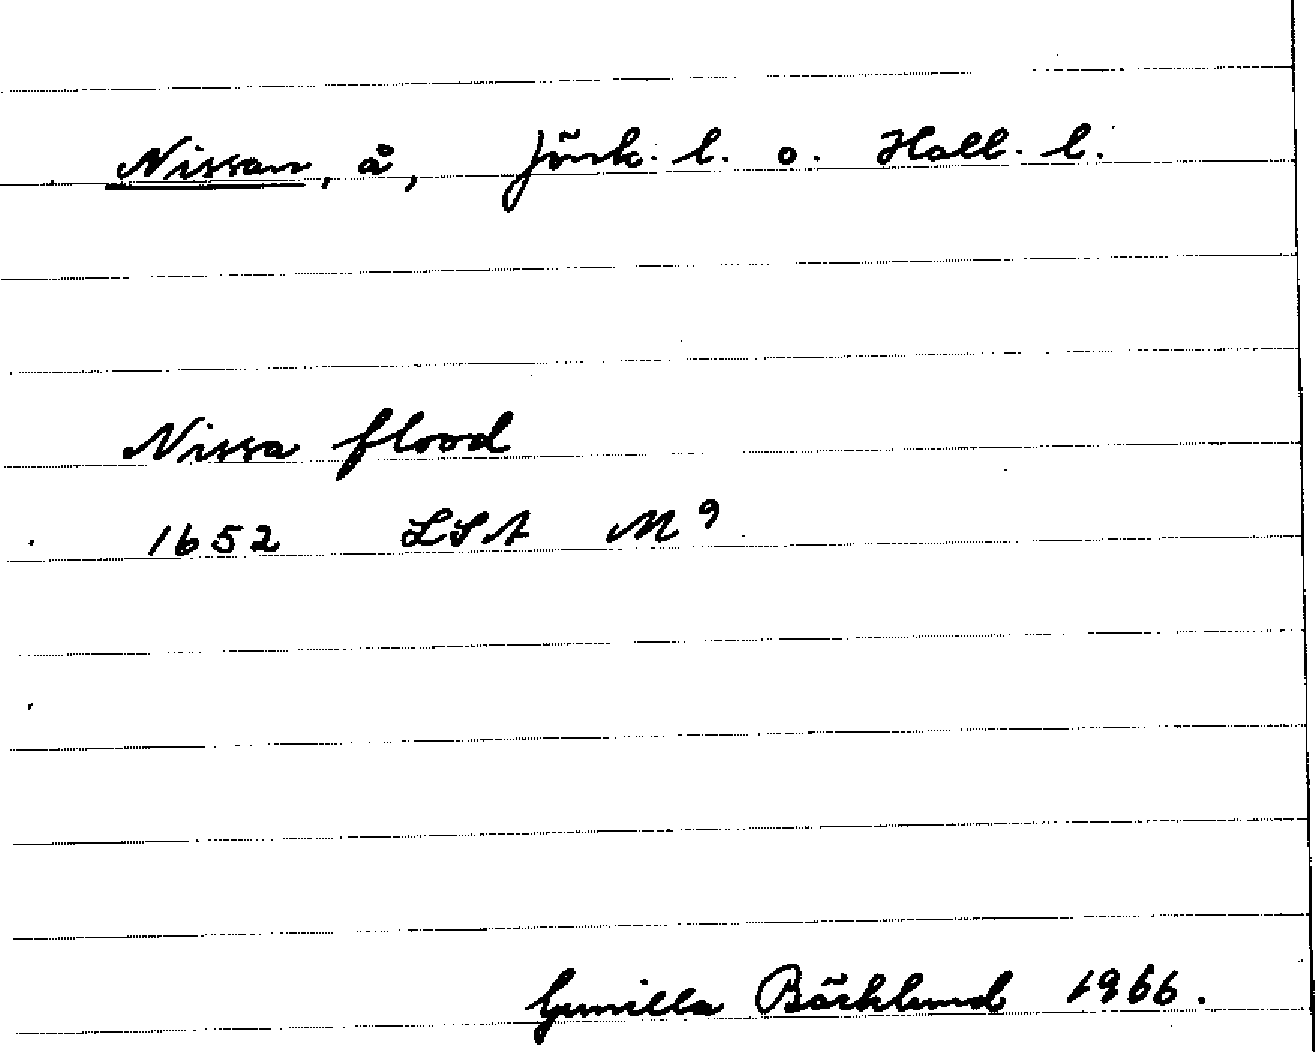 Nissan, å, Jönk. l. o. Hall. l.
Nissa flood
1652 LSA M⁹
Gunilla Bäcklund 1966.